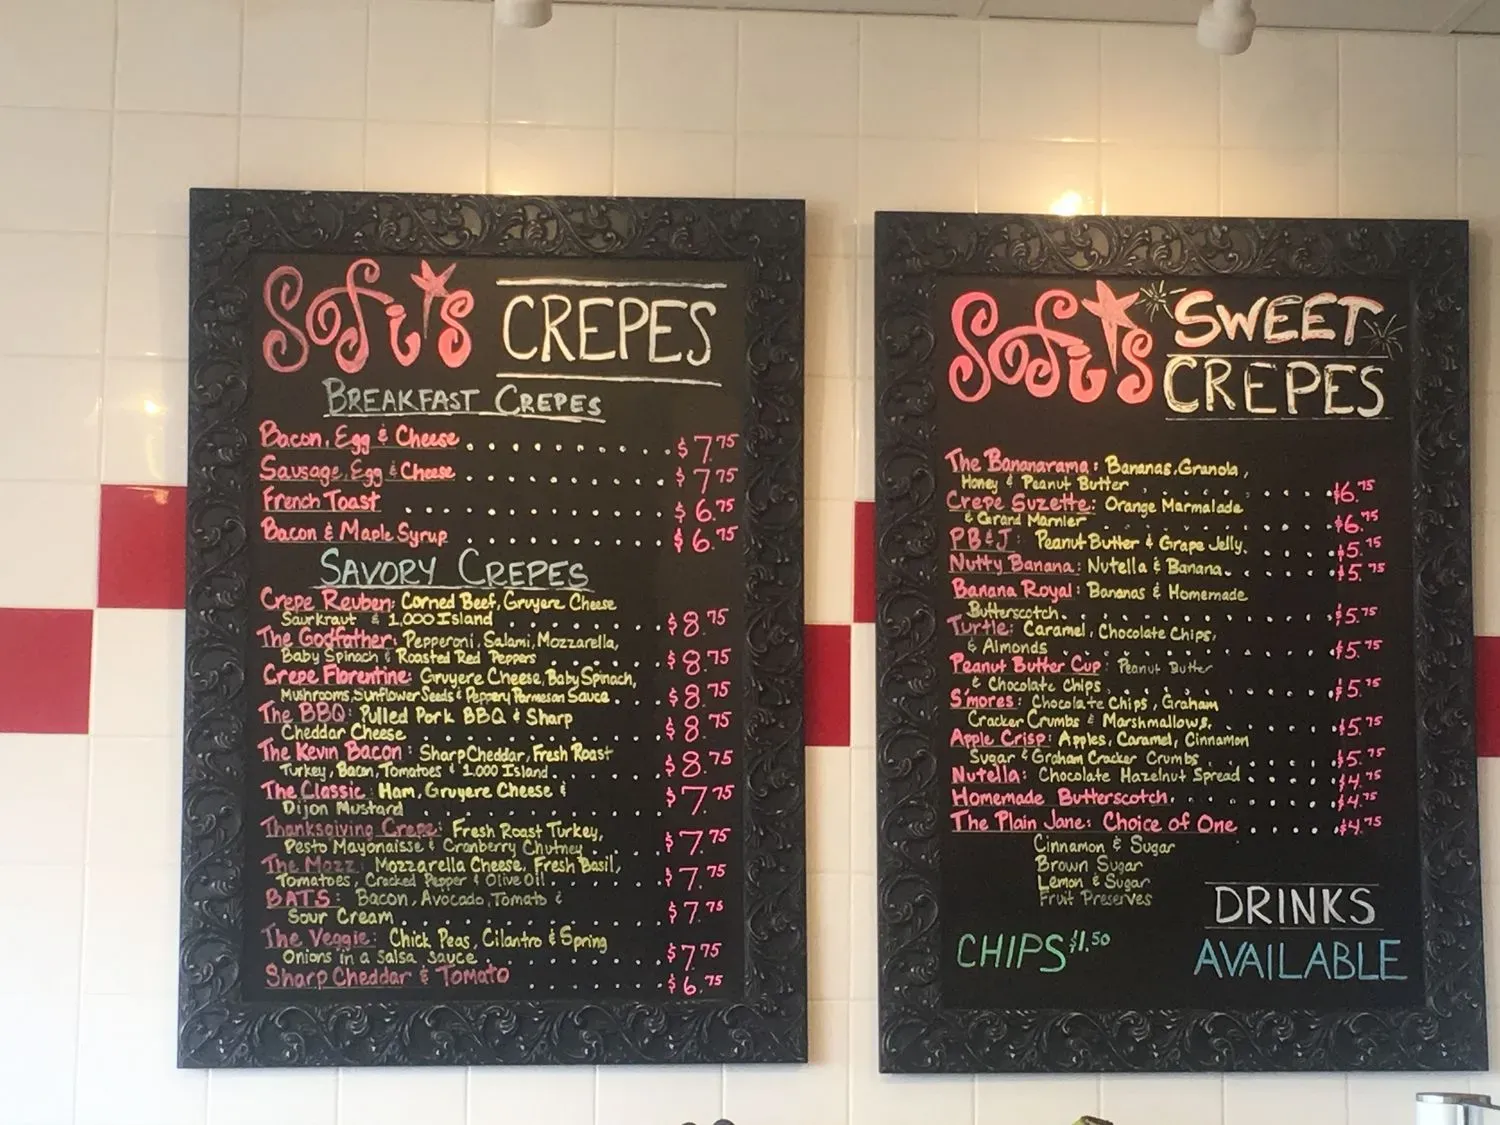 Sofi's CREPES
BREAKFAST CREPES
Bacon, Egg & Cheese . . . . . . . . . . . $7.75
Sausage, Egg & Cheese . . . . . . . . . . . $7.75
French Toast . . . . . . . . . . . . . $6.75
Bacon & Maple Syrup . . . . . . . . . . . $6.75
SAVORY CREPES
Crepe Reuben: Corned Beef, Gruyere Cheese
Saurkraut & 1,000 Island . . . . . . . . . $8.75
The Godfather: Pepperoni, Salami, Mozzarella,
Baby Spinach & Roasted Red Peppers . . . . . . $8.75
Crepe Florentine: Gruyere Cheese, Baby Spinach,
Mushrooms, Sunflower Seeds & Peppery Parmesan Sauce . . . $8.75
The BBQ: Pulled Pork BBQ & Sharp
Cheddar Cheese . . . . . . . . . . . . $8.75
The Kevin Bacon: Sharp Cheddar, Fresh Roast
Turkey, Bacon, Tomatoes & 1,000 Island . . . . . . $8.75
The Classic: Ham, Gruyere Cheese &
Dijon Mustard . . . . . . . . . . . . $7.75
Thanksgiving Crepe: Fresh Roast Turkey,
Pesto Mayonaisse & Cranberry Chutney . . . . $7.75
The Mozz: Mozzarella Cheese, Fresh Basil,
Tomatoes, Cracked Pepper & Olive Oil . . . . . . $7.75
BATS: Bacon, Avocado, Tomato &
Sour Cream . . . . . . . . . . . . $7.75
The Veggie: Chick Peas, Cilantro & Spring
Onions in a Salsa Sauce . . . . . . . . . $7.75
Sharp Cheddar & Tomato . . . . . . . . $6.75
Sofi's SWEET
CREPES
The Bananarama: Bananas, Granola,
Honey & Peanut Butter . . . . . . . . $6.75
Crepe Suzette: Orange Marmalade
& Grand Marnier . . . . . . . . . . $6.75
PB&J: Peanut Butter & Grape Jelly . . . . . $5.75
Nutty Banana: Nutella & Banana . . . . . . $5.75
Banana Royal: Bananas & Homemade
Butterscotch . . . . . . . . . . . $5.75
Turtle: Caramel, Chocolate Chips,
& Almonds . . . . . . . . . . . $5.75
Peanut Butter Cup: Peanut Butter
& Chocolate Chips . . . . . . . . . . $5.75
S'mores: Chocolate Chips, Graham
Cracker Crumbs & Marshmallows, . . . . . . $5.75
Apple Crisp: Apples, Caramel, Cinnamon
Sugar & Graham Cracker Crumbs . . . . . . $5.75
Nutella: Chocolate Hazelnut Spread . . . . . $4.75
Homemade Butterscotch . . . . . . . . $4.75
The Plain Jane: Choice of One . . . . . $4.75
Cinnamon & Sugar
Brown Sugar
Lemon & Sugar
Fruit Preserves
CHIPS $1.50
DRINKS
AVAILABLE